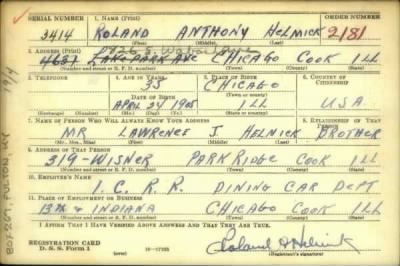 SERIAL NUMBER 1. NAME (Print) ORDER NUMBER
3414 ROLAND ANTHONY HELMICK 2181
(First) (Middle) (Last)
2. ADDRESS (Print) 7926 S. Wabash Ave
4631 LAKE PARK AVE CHICAGO COOK ILL
(Number and street or R. F. D. number) (Town) (County) (State)
3. TELEPHONE 4. AGE IN YEARS 5. PLACE OF BIRTH 6. COUNTRY OF CITIZENSHIP
35 CHICAGO
DATE OF BIRTH (Town or county)
APRIL 24 1905 ILL U.S.A.
(Exchange) (Number) (Mo.) (Day) (Yr.) (State or country)
7. NAME OF PERSON WHO WILL ALWAYS KNOW YOUR ADDRESS 8. RELATIONSHIP OF THAT PERSON
MR LAWRENCE J. HELMICK BROTHER
(Mr., Mrs., Miss) (First) (Middle) (Last)
9. ADDRESS OF THAT PERSON
319 - WISNER PARK RIDGE COOK ILL
(Number and street or R. F. D. number) (Town) (County) (State)
10. EMPLOYER'S NAME
I. C. R. R. DINING CAR DEPT
11. PLACE OF EMPLOYMENT OR BUSINESS
13th & INDIANA CHICAGO COOK ILL
(Number and street or R. F. D. number) (Town) (County) (State)
I AFFIRM THAT I HAVE VERIFIED ABOVE ANSWERS AND THAT THEY ARE TRUE.
REGISTRATION CARD
D. S. S. Form 1 16—17105 Roland A Helmick
(Registrant's signature)